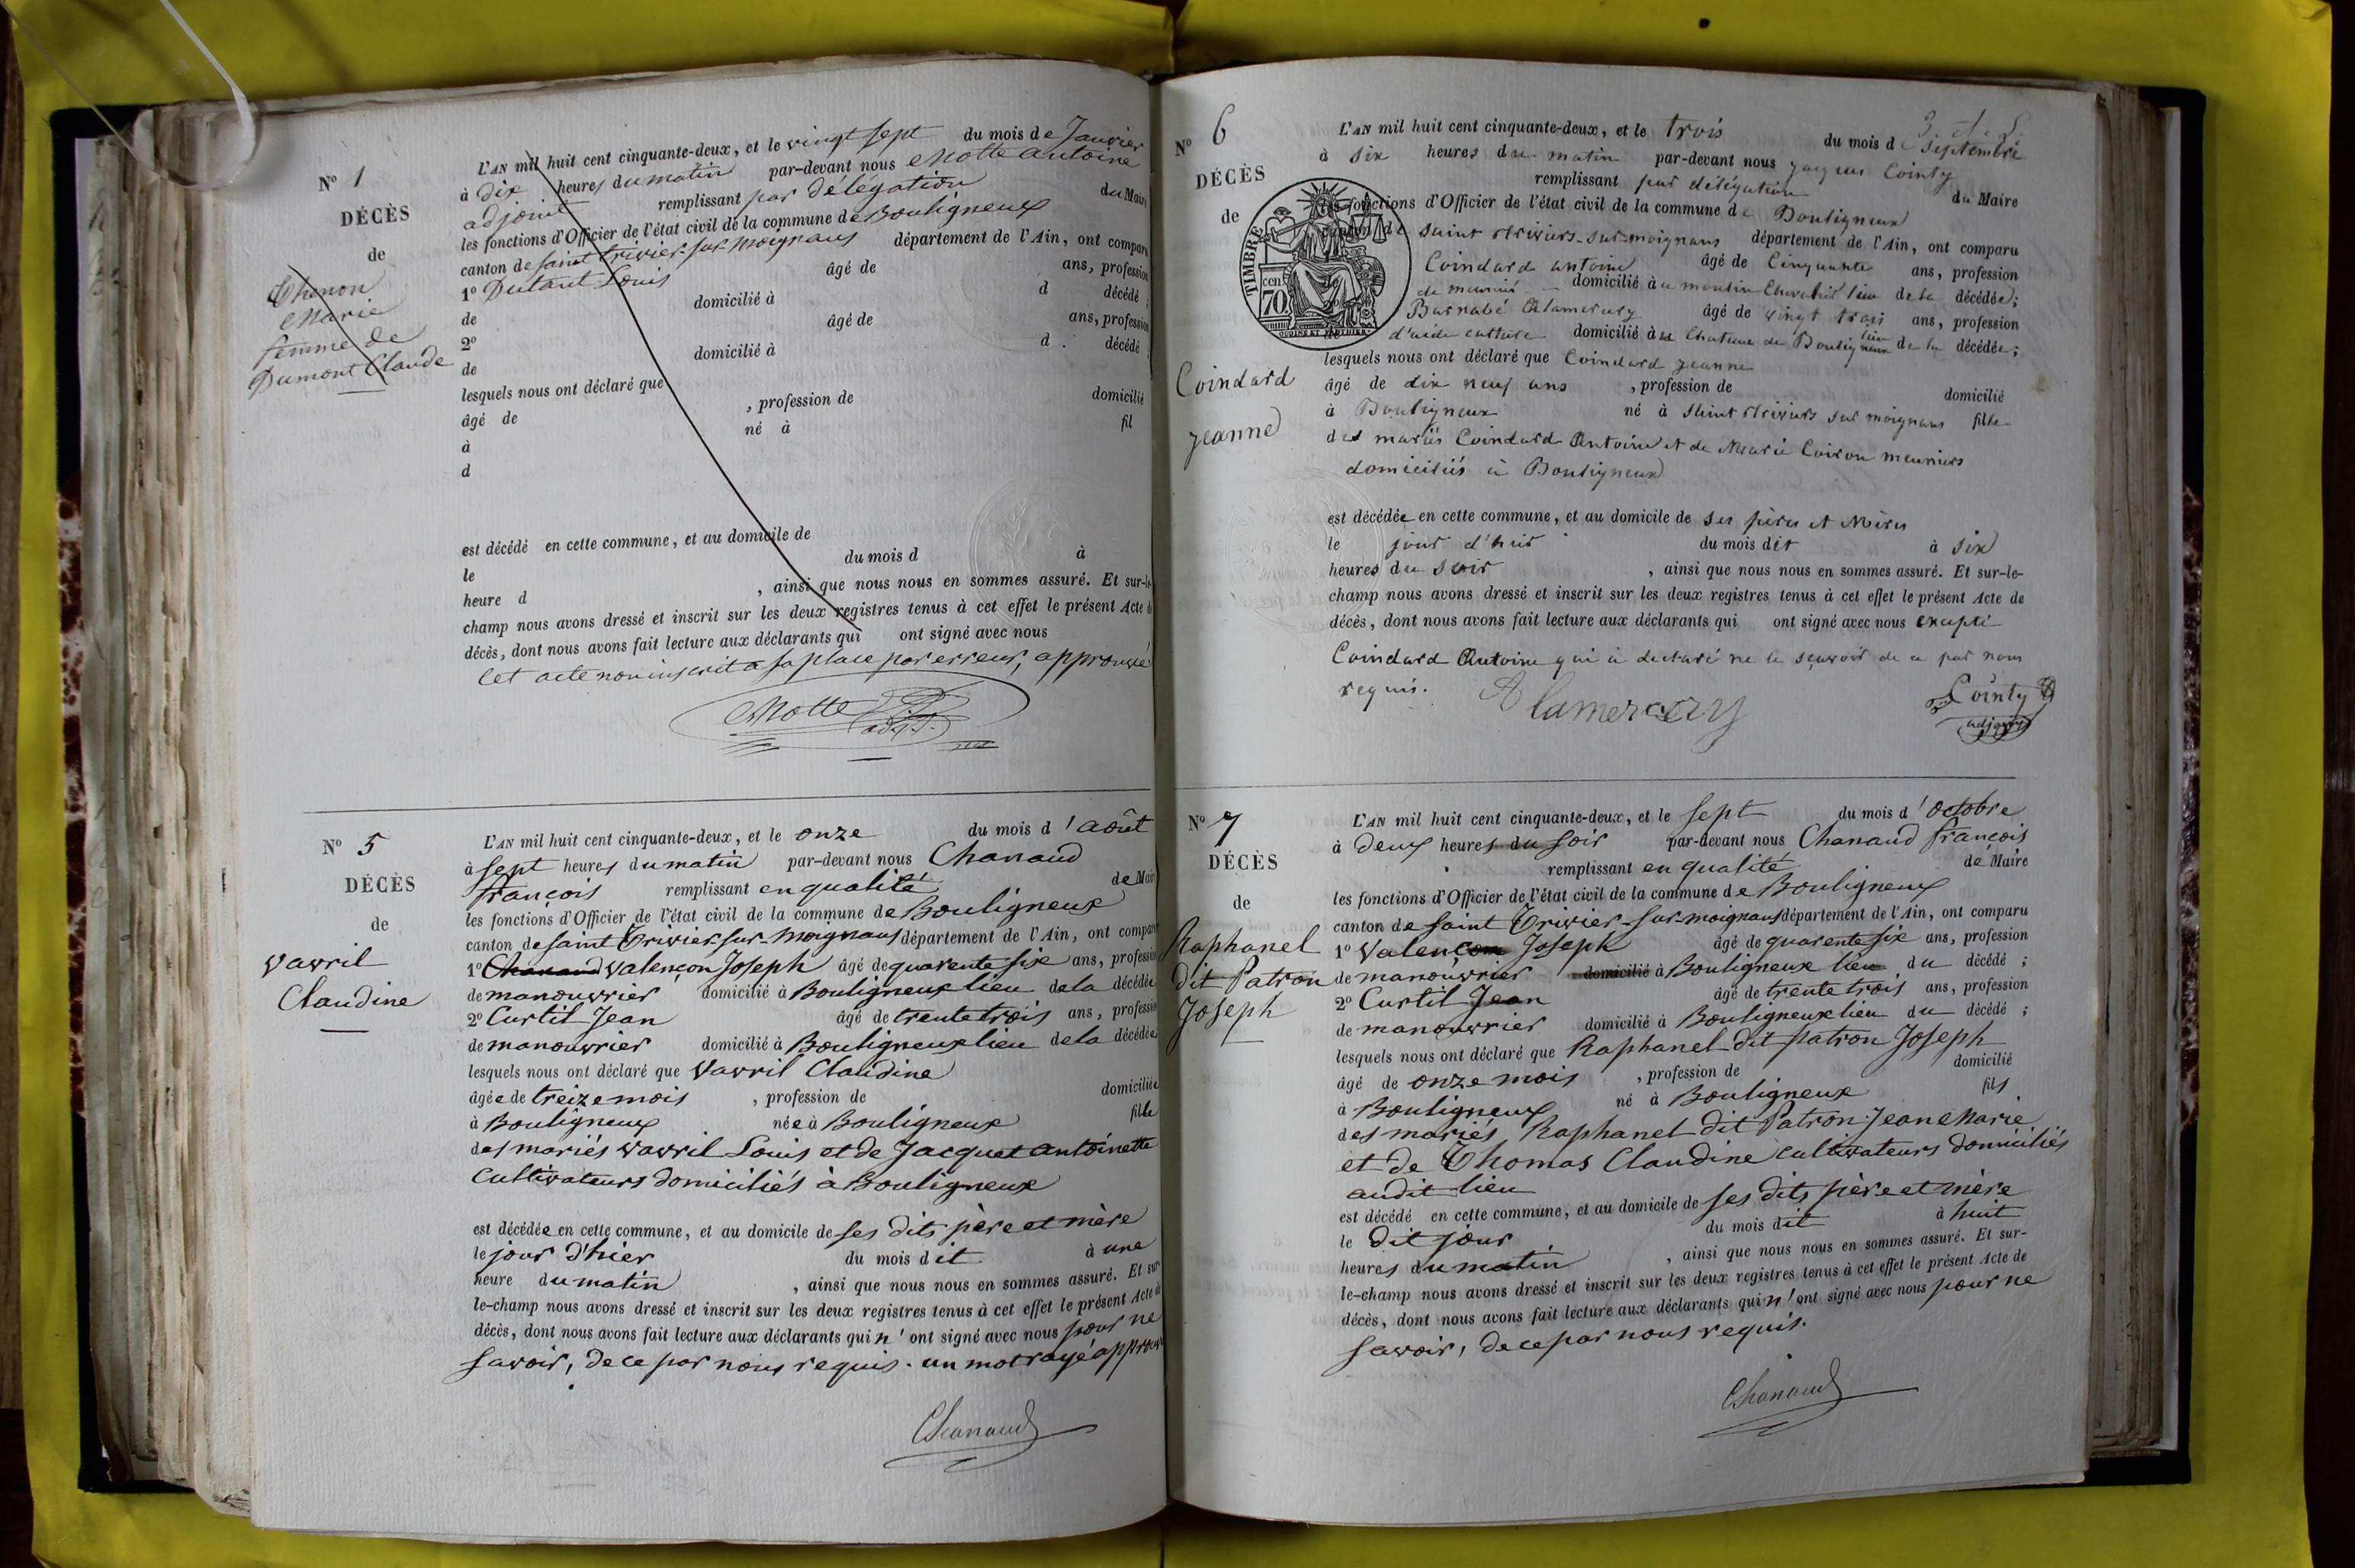 N° 1
DÉCÈS
de
Thenon
Marie
femme de
Dumont Claude
L'AN mil huit cent cinquante-deux, et le vingt sept du mois de Janvier
à dix heures du matin par-devant nous Motte antoine
adjoint remplissant par délégation du Maire
les fonctions d'Officier de l'état civil de la commune de Bouligneux
canton de saint trivier-sur-moignans département de l'Ain, ont comparu
1° Dutant Louis âgé de ans, profession
de domicilié à d décédé ;
2° âgé de ans, profession
de domicilié à d décédé ;
lesquels nous ont déclaré que
âgé de , profession de domicilié
à né à fil
d
est décédé en cette commune, et au domicile de
le du mois d à
heure d , ainsi que nous nous en sommes assuré. Et sur-le-
champ nous avons dressé et inscrit sur les deux registres tenus à cet effet le présent Acte de
décès, dont nous avons fait lecture aux déclarants qui ont signé avec nous
Cet acte non inscrit a sa place par erreur, approuvé
Motte
adjt.
N° 5
DÉCÈS
de
Vavril
Claudine
L'AN mil huit cent cinquante-deux, et le onze du mois d'août
à sept heures du matin par-devant nous Chanaud
françois remplissant en qualité de Maire
les fonctions d'Officier de l'état civil de la commune de Bouligneux
canton de saint Trivier-sur-moignans département de l'Ain, ont comparu
1° Chanaud Valençon Joseph âgé de quarente six ans, profession
de manouvrier domicilié à Bouligneux lieu de la décédée
2° Curtil Jean âgé de trente trois ans, profession
de manouvrier domicilié à Bouligneux lieu de la décédée
lesquels nous ont déclaré que Vavril Claudine
âgée de treize mois , profession de domiciliée
à Bouligneux née à Bouligneux fille
des mariés Vavril Louis et de Jacquet antoinette
Cultivateurs domiciliés à Bouligneux
est décédée en cette commune, et au domicile de ses dits père et mère
le jour d'hier du mois dit à une
heure du matin , ainsi que nous nous en sommes assuré. Et sur-
le-champ nous avons dressé et inscrit sur les deux registres tenus à cet effet le présent Acte de
décès, dont nous avons fait lecture aux déclarants qui n'ont signé avec nous pour ne
savoir, de ce par nous requis. un mot rayé approuvé
Chanaud
N° 6
DÉCÈS
de
Coindard
jeanne
TIMBRE
70 cen.
L'AN mil huit cent cinquante-deux, et le trois du mois de septembre
à six heures du matin par-devant nous jacques Cointy
remplissant par délégation du Maire
les fonctions d'Officier de l'état civil de la commune de Bouligneux
canton de saint trivier-sur-moignans département de l'Ain, ont comparu
Coindard antoine âgé de Cinquante ans, profession
de meunier domicilié au moulin lieu de la décédée;
Barnabé Alamercery âgé de vingt trois ans, profession
d'aide culture domicilié au Chateau de Bouligneux lieu de la décédée;
lesquels nous ont déclaré que Coindard jeanne
âgé de dix neuf ans , profession de domicilié
à Bouligneux né à saint trivier sur moignans fille
des mariés Coindard Antoine et de Marie Coiron meuniers
domiciliés à Bouligneux
est décédée en cette commune, et au domicile de ses pères et Mères
le jour d'hier du mois dit à six
heures du soir , ainsi que nous nous en sommes assuré. Et sur-le-
champ nous avons dressé et inscrit sur les deux registres tenus à cet effet le présent Acte de
décès, dont nous avons fait lecture aux déclarants qui ont signé avec nous excepté
Coindard Antoine qui à declaré ne le sçavoir de ce par nous
requis.
Alamercery
Cointy
adjoint
N° 7
DÉCÈS
de
Raphanel
dit Patron
Joseph
L'AN mil huit cent cinquante-deux, et le sept du mois d'octobre
à deux heures du soir par-devant nous Chanaud françois
remplissant en qualité de Maire
les fonctions d'Officier de l'état civil de la commune de Bouligneux
canton de saint Trivier-sur-moignans département de l'Ain, ont comparu
1° Valençon Joseph âgé de quarente six ans, profession
de manouvrier domicilié à Bouligneux lieu du décédé ;
2° Curtil Jean âgé de trente trois ans, profession
de manouvrier domicilié à Bouligneux lieu du décédé ;
lesquels nous ont déclaré que Raphanel dit patron Joseph
âgé de onze mois , profession de domicilié
à Bouligneux né à Bouligneux fils
des mariés Raphanel dit Patron Jean Marie
et de Thomas Claudine cultivateurs domiciliés
audit lieu
est décédé en cette commune, et au domicile de ses dits père et mère
le dit jour du mois dit à huit
heures du matin , ainsi que nous nous en sommes assuré. Et sur-
le-champ nous avons dressé et inscrit sur les deux registres tenus à cet effet le présent Acte de
décès, dont nous avons fait lecture aux déclarants qui n'ont signé avec nous pour ne
savoir, de ce par nous requis.
Chanaud